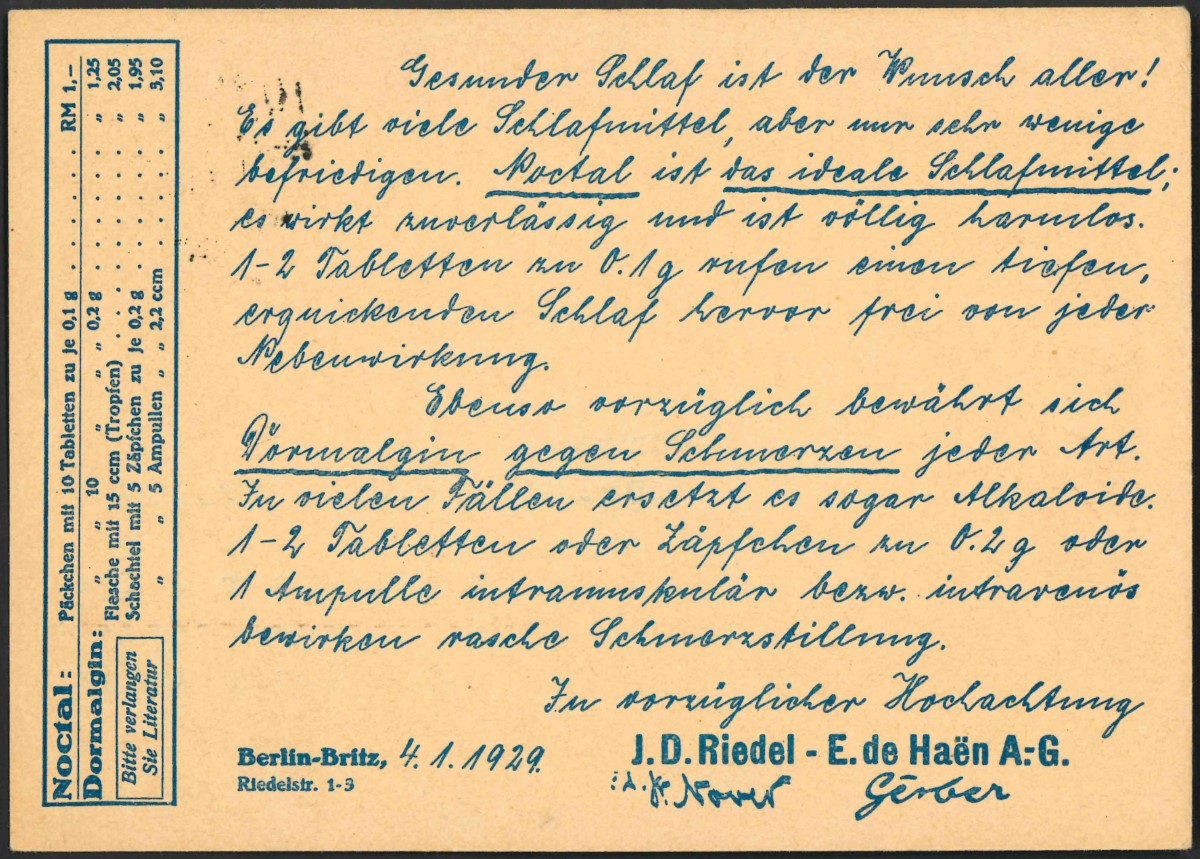 Gesunder Schlaf ist der Wunsch aller!
Es gibt viele Schlafmittel, aber nur sehr wenige
befriedigen. Noctal ist das ideale Schlafmittel;
es wirkt zuverlässig und ist völlig harmlos.
1-2 Tabletten zu 0.1g rufen einen tiefen,
erquickenden Schlaf hervor frei von jeder
Nebenwirkung.
Ebenso vorzüglich bewährt sich
Dormalgin gegen Schmerzen jeder Art.
In vielen Fällen ersetzt es sogar Alkaloide.
1-2 Tabletten oder Zäpfchen zu 0.2g oder
1 Ampulle intramuskulär bezw. intravenös
bewirken rasche Schmerzstillung.
In vorzüglicher Hochachtung
J.D. Riedel - E. de Haën A.-G.
Gerber
Berlin-Britz, 4.1.1929.
Riedelstr. 1-3
Noctal: Päckchen mit 10 Tabletten zu je 0,1 g . . . . . RM 1,–
Dormalgin: „ „ 10 „ „ „ 0,2 g . . . . . „ 1,25
Flasche mit 15 ccm (Tropfen) . . . . . . . „ 2,05
Schachtel mit 5 Zäpfchen zu je 0,2 g . . . . . „ 1,95
„ „ 5 Ampullen „ „ 2,2 ccm . . . . „ 3,10
Bitte verlangen
Sie Literatur